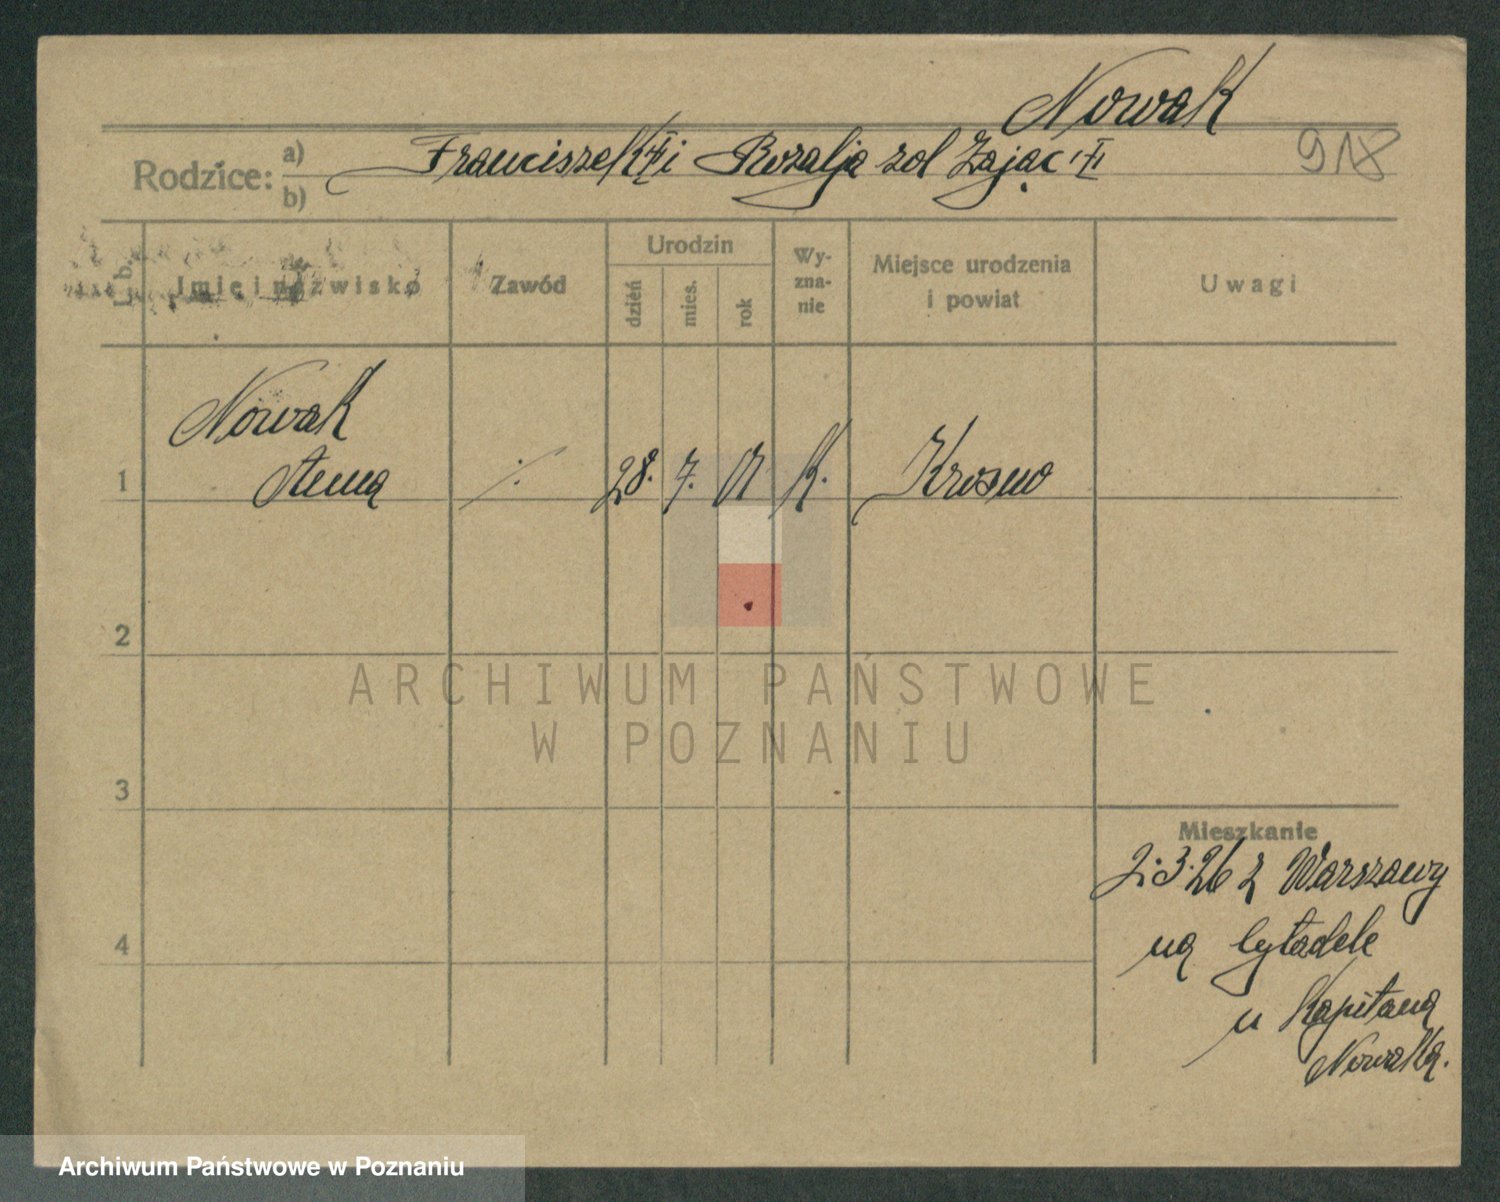 Nowak
Rodzice: a) Franciszek i Rozalja zd Zając
b)
918
L. b.
Imię i nazwisko
Zawód
Urodzin
dzień
mies.
rok
Wy-
zna-
nie
Miejsce urodzenia
i powiat
Uwagi
Nowak
1 Anna ·/· 28. 7. 01 K. Krosno
2
3
4
Mieszkanie
2.3.26 z Warszawy
na Cytadele
u Kapitana
Nowaka.
ARCHIWUM PAŃSTWOWE
W POZNANIU
Archiwum Państwowe w Poznaniu